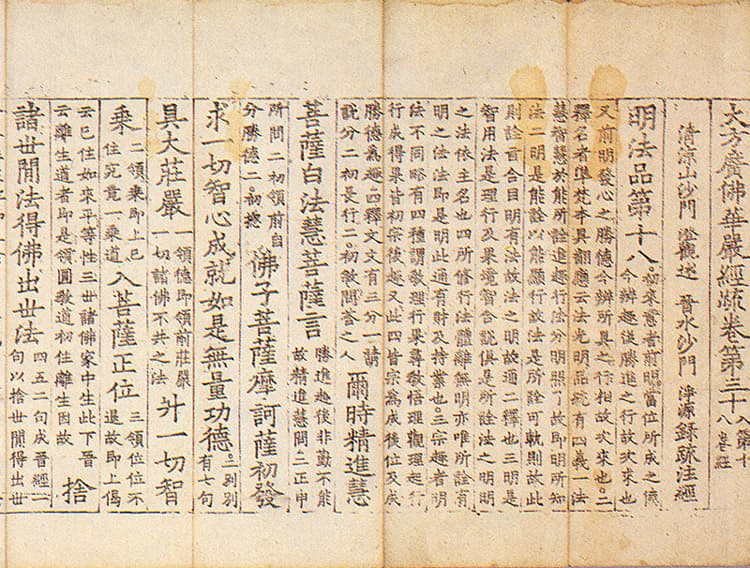 大方廣佛華嚴經疏卷第三十八
清涼山沙門 澄觀述 晉水沙門 淨源錄疏注經
明法品第十八
初來意者前明當位所成之德
今辨趣後勝進之行故次來也
又前明發心之勝德今辨所具之行相故次來也二
釋名者準梵本具翻應云法光明品統有四義一法
慧智慧於能所詮進趣行法分明照了故即明所知
法二明是能詮以能顯行故法是所詮可軌則故此
則詮旨合目明有法故法之明故通二釋也三明是
智用法是理行及果境智合說俱是所詮法之明明
之法依主名也四所修行法體離無明亦唯所詮有
明之法法即是明此通有財及持業也三宗趣者明
法不同略有四種謂教理行果尋教悟理觀理起行
行成得果皆初宗後趣又此四皆宗為成後位及成
勝德為趣四釋文文有三分一請
說分二初長行二初敘問答之人
爾時精進慧
菩薩白法慧菩薩言
勝進趣後非勤不能
故精進慧問二正申
所問二初領前自
分勝德二初總
佛子菩薩摩訶薩初發
求一切智心成就如是無量功德
二別別
有七句
具大莊嚴
一領德即領前莊嚴
一切諸佛不共之法
升一切智
乘
二領乘即上已
住究竟一乘道
入菩薩正位
三領位位不
退故即上偈
云已住如來平等性三世諸佛家中生此下晉
云離生道者即是領圓教道初住離生因故
捨
諸世間法得佛出世法
四五二句成晉經一
句以捨世間得出世